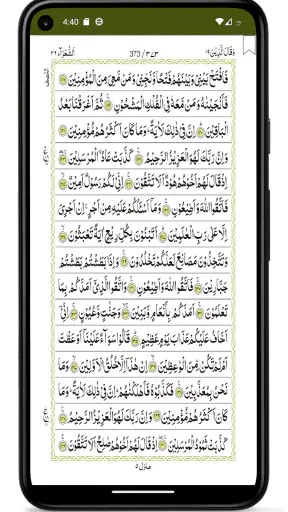 4:40
وَقَالَ الَّذِيْنَ ١٩ 373 / ٣٧٣ اَلشُّعَرَآء ٢٦
فَافْتَحْ بَيْنِيْ وَبَيْنَهُمْ فَتْحًا وَّنَجِّنِيْ وَمَنْ مَّعِيَ مِنَ الْمُؤْمِنِيْنَ ﴿١١٨﴾
فَاَنْجَيْنٰهُ وَمَنْ مَّعَهٗ فِي الْفُلْكِ الْمَشْحُوْنِ ﴿١١٩﴾ ثُمَّ اَغْرَقْنَا بَعْدُ
الْبٰقِيْنَ ﴿١٢٠﴾ اِنَّ فِيْ ذٰلِكَ لَاٰيَةً ؕ وَمَا كَانَ اَكْثَرُهُمْ مُّؤْمِنِيْنَ ﴿١٢١﴾
وَاِنَّ رَبَّكَ لَهُوَ الْعَزِيْزُ الرَّحِيْمُ ﴿١٢٢﴾ كَذَّبَتْ عَادُ اۨلْمُرْسَلِيْنَ ﴿١٢٣﴾
اِذْ قَالَ لَهُمْ اَخُوْهُمْ هُوْدٌ اَلَا تَتَّقُوْنَ ﴿١٢٤﴾ اِنِّيْ لَكُمْ رَسُوْلٌ اَمِيْنٌ ﴿١٢٥﴾
فَاتَّقُوا اللّٰهَ وَاَطِيْعُوْنِ ﴿١٢٦﴾ وَمَاۤ اَسْـَٔلُكُمْ عَلَيْهِ مِنْ اَجْرٍ ۚ اِنْ اَجْرِيَ
اِلَّا عَلٰى رَبِّ الْعٰلَمِيْنَ ﴿١٢٧﴾ اَتَبْنُوْنَ بِكُلِّ رِيْعٍ اٰيَةً تَعْبَثُوْنَ ﴿١٢٨﴾
وَتَتَّخِذُوْنَ مَصَانِعَ لَعَلَّكُمْ تَخْلُدُوْنَ ﴿١٢٩﴾ وَاِذَا بَطَشْتُمْ بَطَشْتُمْ
جَبَّارِيْنَ ﴿١٣٠﴾ فَاتَّقُوا اللّٰهَ وَاَطِيْعُوْنِ ﴿١٣١﴾ وَاتَّقُوا الَّذِيْۤ اَمَدَّكُمْ بِمَا
تَعْلَمُوْنَ ﴿١٣٢﴾ اَمَدَّكُمْ بِاَنْعَامٍ وَّبَنِيْنَ ﴿١٣٣﴾ وَجَنّٰتٍ وَّعُيُوْنٍ ﴿١٣٤﴾ اِنِّيْۤ
اَخَافُ عَلَيْكُمْ عَذَابَ يَوْمٍ عَظِيْمٍ ﴿١٣٥﴾ قَالُوْا سَوَآءٌ عَلَيْنَاۤ اَوَعَظْتَ
اَمْ لَمْ تَكُنْ مِّنَ الْوٰعِظِيْنَ ﴿١٣٦﴾ اِنْ هٰذَاۤ اِلَّا خُلُقُ الْاَوَّلِيْنَ ﴿١٣٧﴾ وَمَا
نَحْنُ بِمُعَذَّبِيْنَ ﴿١٣٨﴾ فَكَذَّبُوْهُ فَاَهْلَكْنٰهُمْ ؕ اِنَّ فِيْ ذٰلِكَ لَاٰيَةً ؕ وَمَا
كَانَ اَكْثَرُهُمْ مُّؤْمِنِيْنَ ﴿١٣٩﴾ وَاِنَّ رَبَّكَ لَهُوَ الْعَزِيْزُ الرَّحِيْمُ ﴿١٤٠﴾
كَذَّبَتْ ثَمُوْدُ الْمُرْسَلِيْنَ ﴿١٤١﴾ اِذْ قَالَ لَهُمْ اَخُوْهُمْ صٰلِحٌ اَلَا تَتَّقُوْنَ ﴿١٤٢﴾
منزل ٥